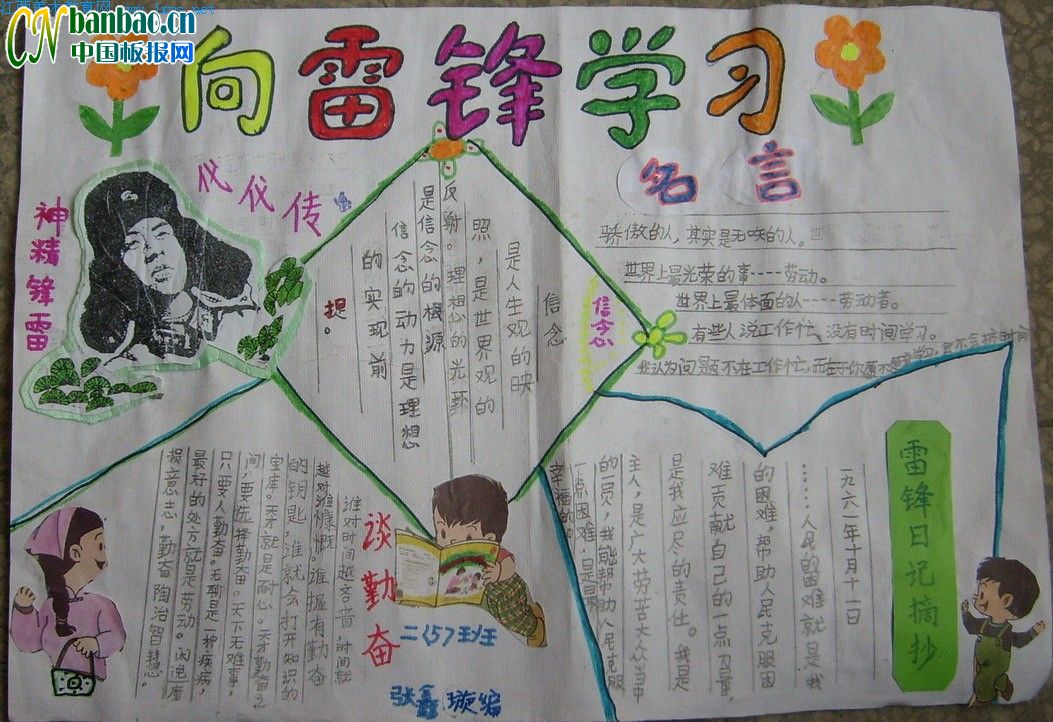 CN banbao.cn
中国板报网
向雷锋学习
雷锋精神
代代传
名言
骄傲的人，其实是无味的人。
世界上最光荣的事----劳动。
世界上最体面的人----劳动者。
有些人说工作忙、没有时间学习。
我认为问题不在工作忙，而在于你愿不
信念
信念
是人生观的映
照，是世界观的
反射。理想的光环
是信念的根源
信念的动力是理想
的实现前
提。
谈勤奋
谁对时间越吝啬，时间就
越对谁慷慨。谁握有勤奋
的钥匙，谁就会打开知识的
宝库。天才就是耐心。天才勤奋之
间，要选择勤奋。天下无难事。
只要人勤奋。无聊是一种疾病，
最好的处方就是劳动。闲逸磨
损意志，勤奋陶冶智慧。
二(5)班
张鑫璇编
雷锋日记摘抄
一九六一年十月十一日
……人民的困难就是我
的困难，帮助人民克服困
难贡献自己的一点力量，
是我应尽的责任。我是
主人，是广大劳苦大众当中
的一员，我能帮助人民克服
一点困难，是最
幸福的。